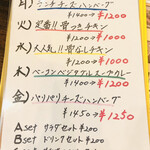 ランチチーズハンバーグ
¥1400→¥1200
火) 定番!!骨つきチキン
¥1200→¥1000
水) 大人気!!骨なしチキン
¥1200→¥1000
木) ベーコンベジタブルスープカレー
¥1400→¥1200
金) パリパリチーズハンバーグ
¥1450→¥1250
Aset サラダセット ¥200
Bset ドリンクセット ¥200